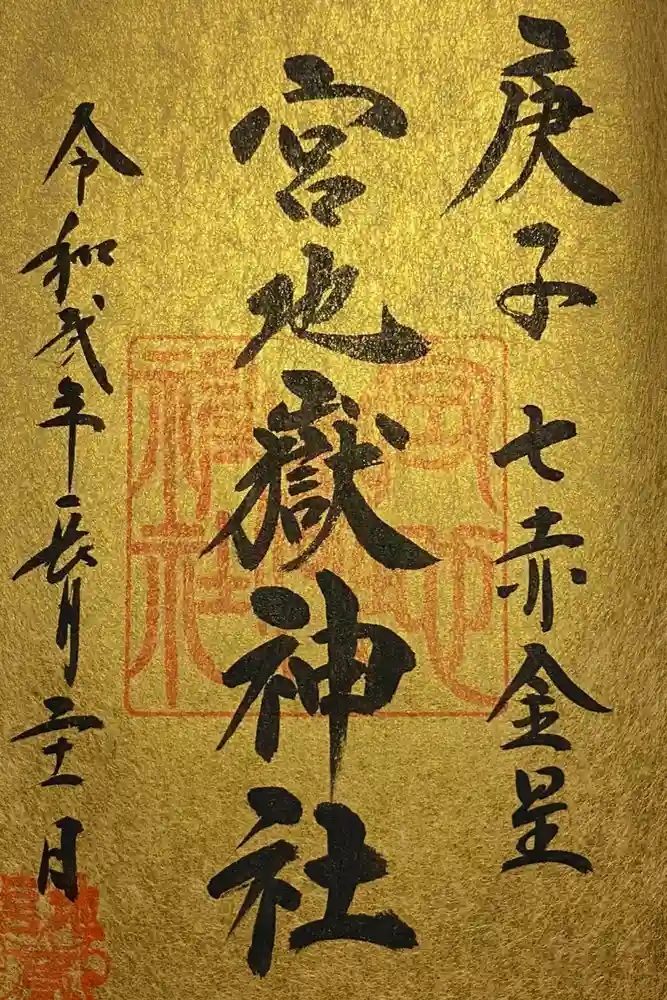 庚子 七赤金星
宮地嶽神社
令和弐年長月二十一日